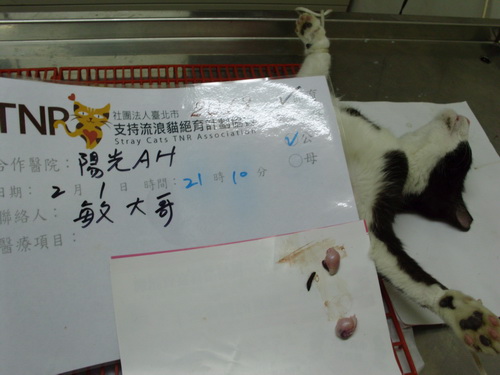 TNR
社團法人臺北市
支持流浪貓絕育計劃協會
Stray Cats TNR Association
公
母
合作醫院：陽光AH
日期：2月1日 時間：21時10分
聯絡人：敏大哥
醫療項目：